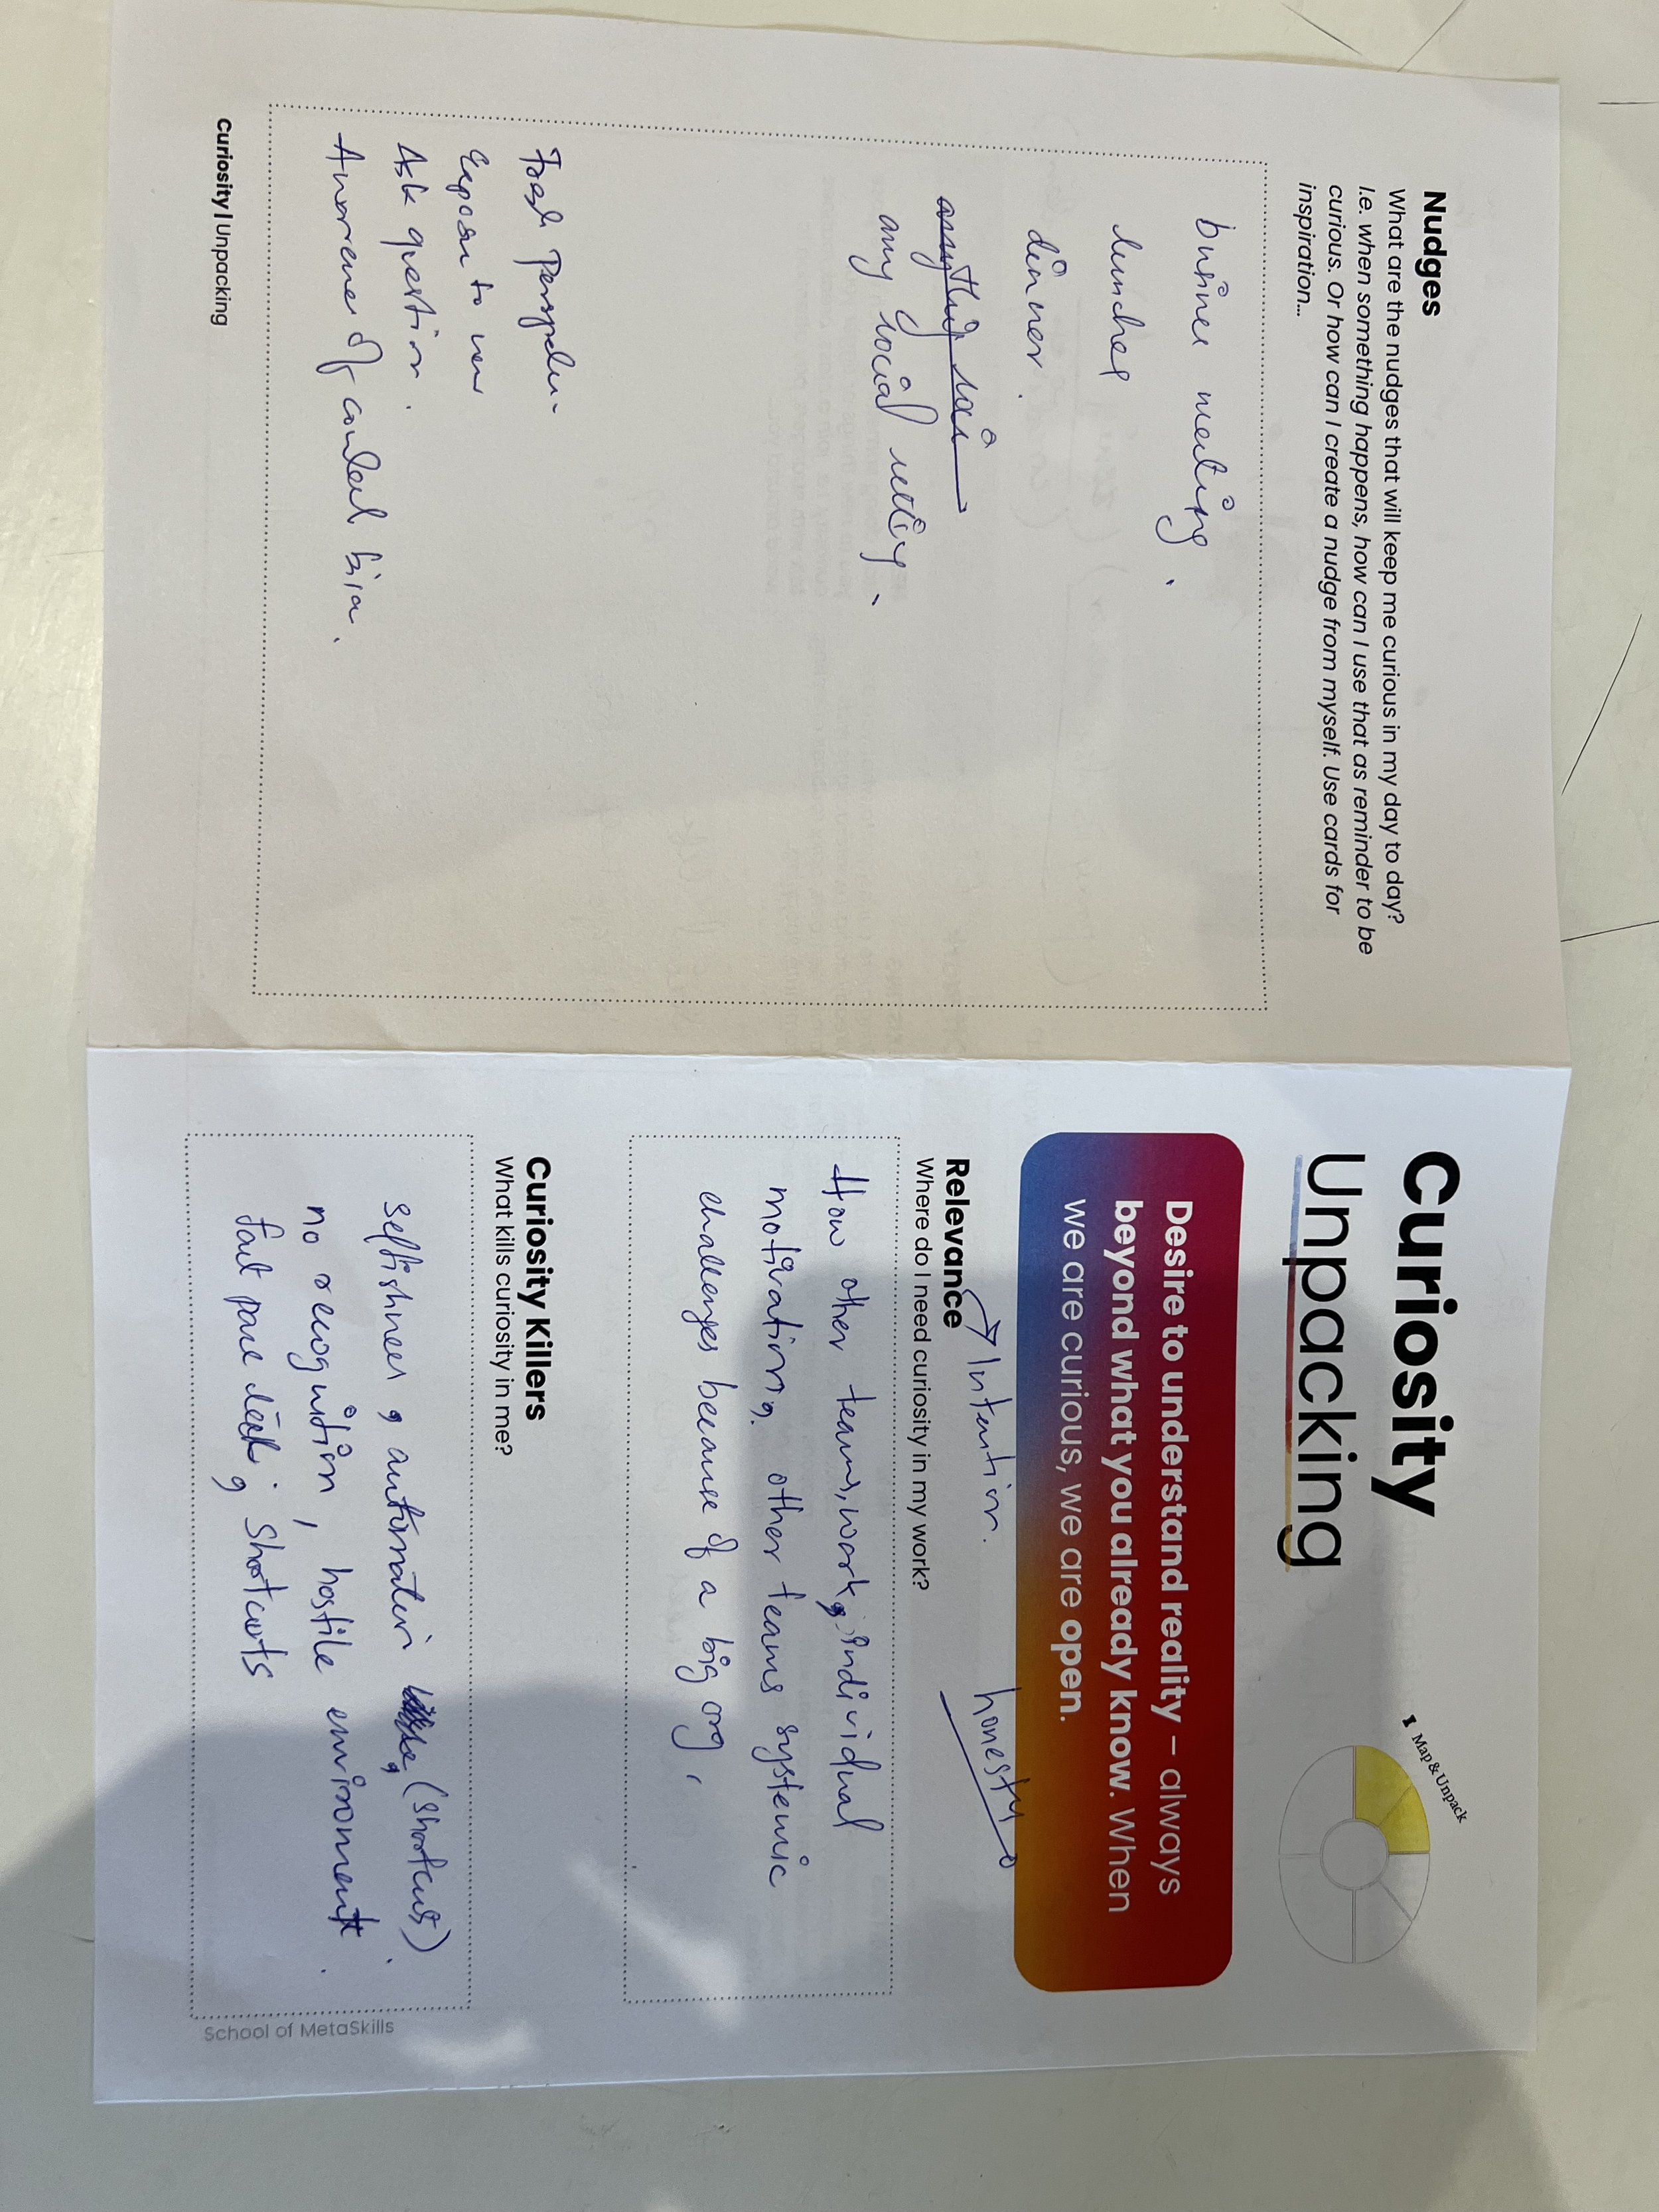 Nudges
What are the nudges that will keep me curious in my day to day?
I.e. when something happens, how can I use that as reminder to be
curious. Or how can I create a nudge from myself. Use cards for
inspiration...
meeting.
lunches
dinner.
any social setting.
to new
Ask question.
of
Curiosity | Unpacking
Curiosity
Unpacking
1 Map & Unpack
Desire to understand reality – always
beyond what you already know. When
we are curious, we are open.
Intention.
honesty
Relevance
Where do I need curiosity in my work?
How other teams, work, individual
motivation, other teams systemic
challenges because of a big org,
Curiosity Killers
What kills curiosity in me?
selfishness, automation (shortcuts)
no recognition, hostile environment.
shortcuts
School of MetaSkills